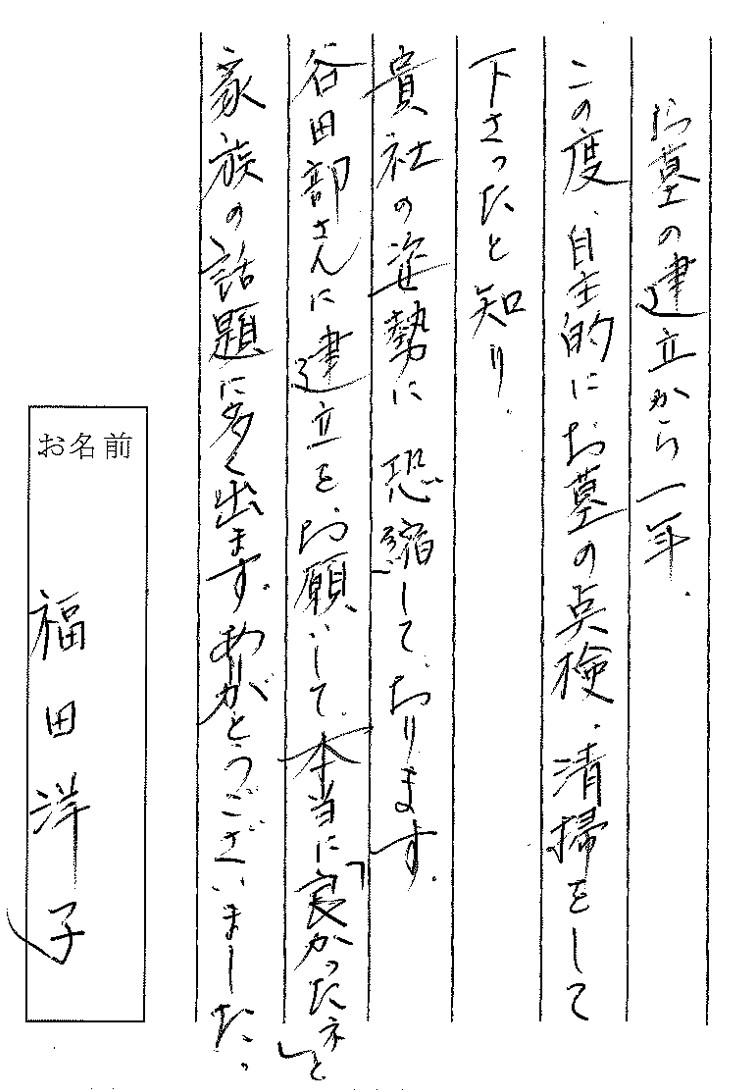 お墓の建立から一年、
この度、自主的にお墓の点検、清掃をして
下さったと知り、
貴社の姿勢に恐縮して、おります。
谷田部さんに建立をお願いして、本当に「良かったネ」と
家族の話題に多く出ます。ありがとうございました。
お名前
福田洋子